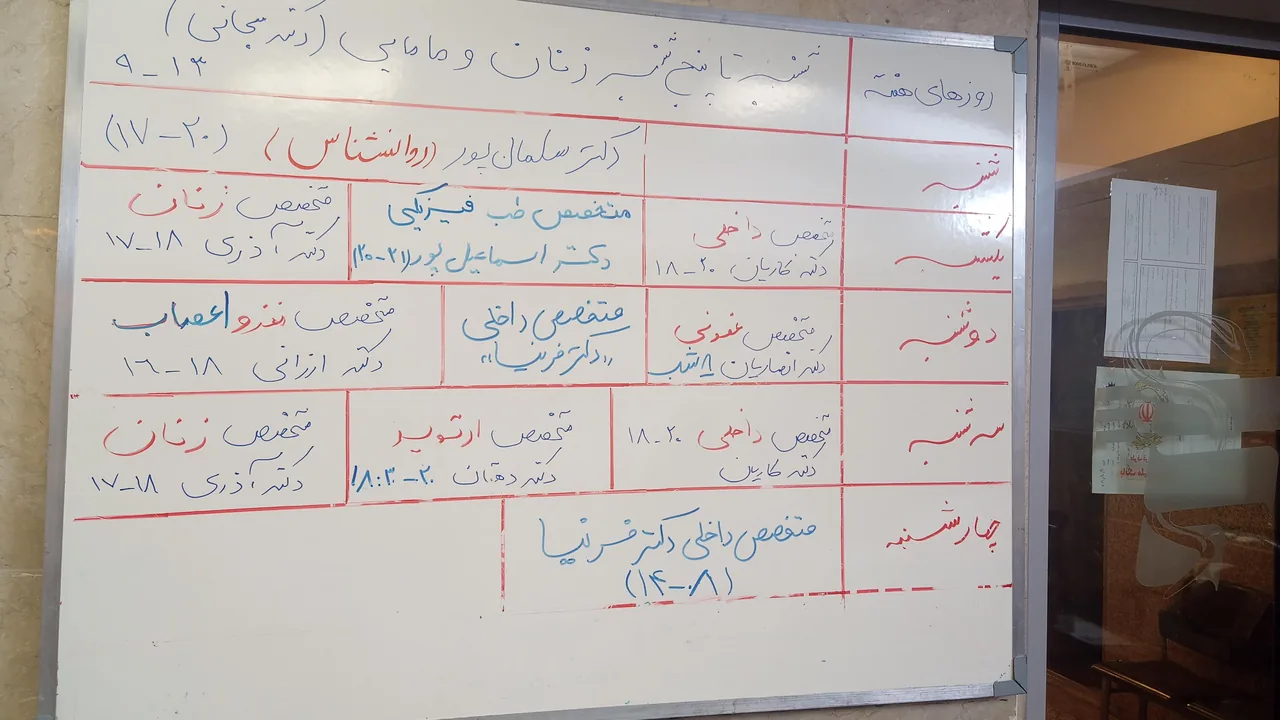 روزهای هفته
شنبه تا پنج شنبه زنان و مامایی (دکتر سبحانی)
۹ - ۱۳
شنبه
دکتر سلمان پور (روانشناس) (۱۷-۲۰)
یکشنبه
متخصص داخلی
دکتر کاریان ۱۸-۲۰
متخصص طب فیزیکی
دکتر اسماعیل پور (۲۰-۲۱)
متخصص زنان
دکتر آذری ۱۷-۱۸
دوشنبه
متخصص عفونی
دکتر انصاریان ۸ شب
متخصص داخلی
"دکتر فرنیا"
متخصص مغز و اعصاب
دکتر ارزانی ۱۶-۱۸
سه شنبه
متخصص داخلی ۱۸-۲۰
دکتر کاریان
متخصص ارتوپد
دکتر دهقان ۱۸:۳۰-۲۰
متخصص زنان
دکتر آذری ۱۷-۱۸
چهارشنبه
متخصص داخلی دکتر فرنیا